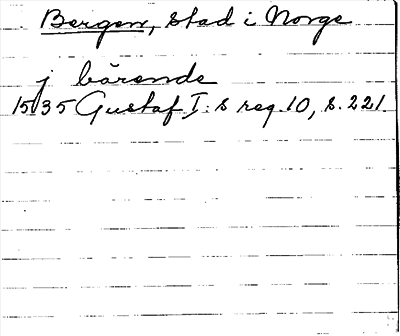 Bergen, stad i Norge
j bärende
1535 Gustaf I:s reg. 10, s. 221.